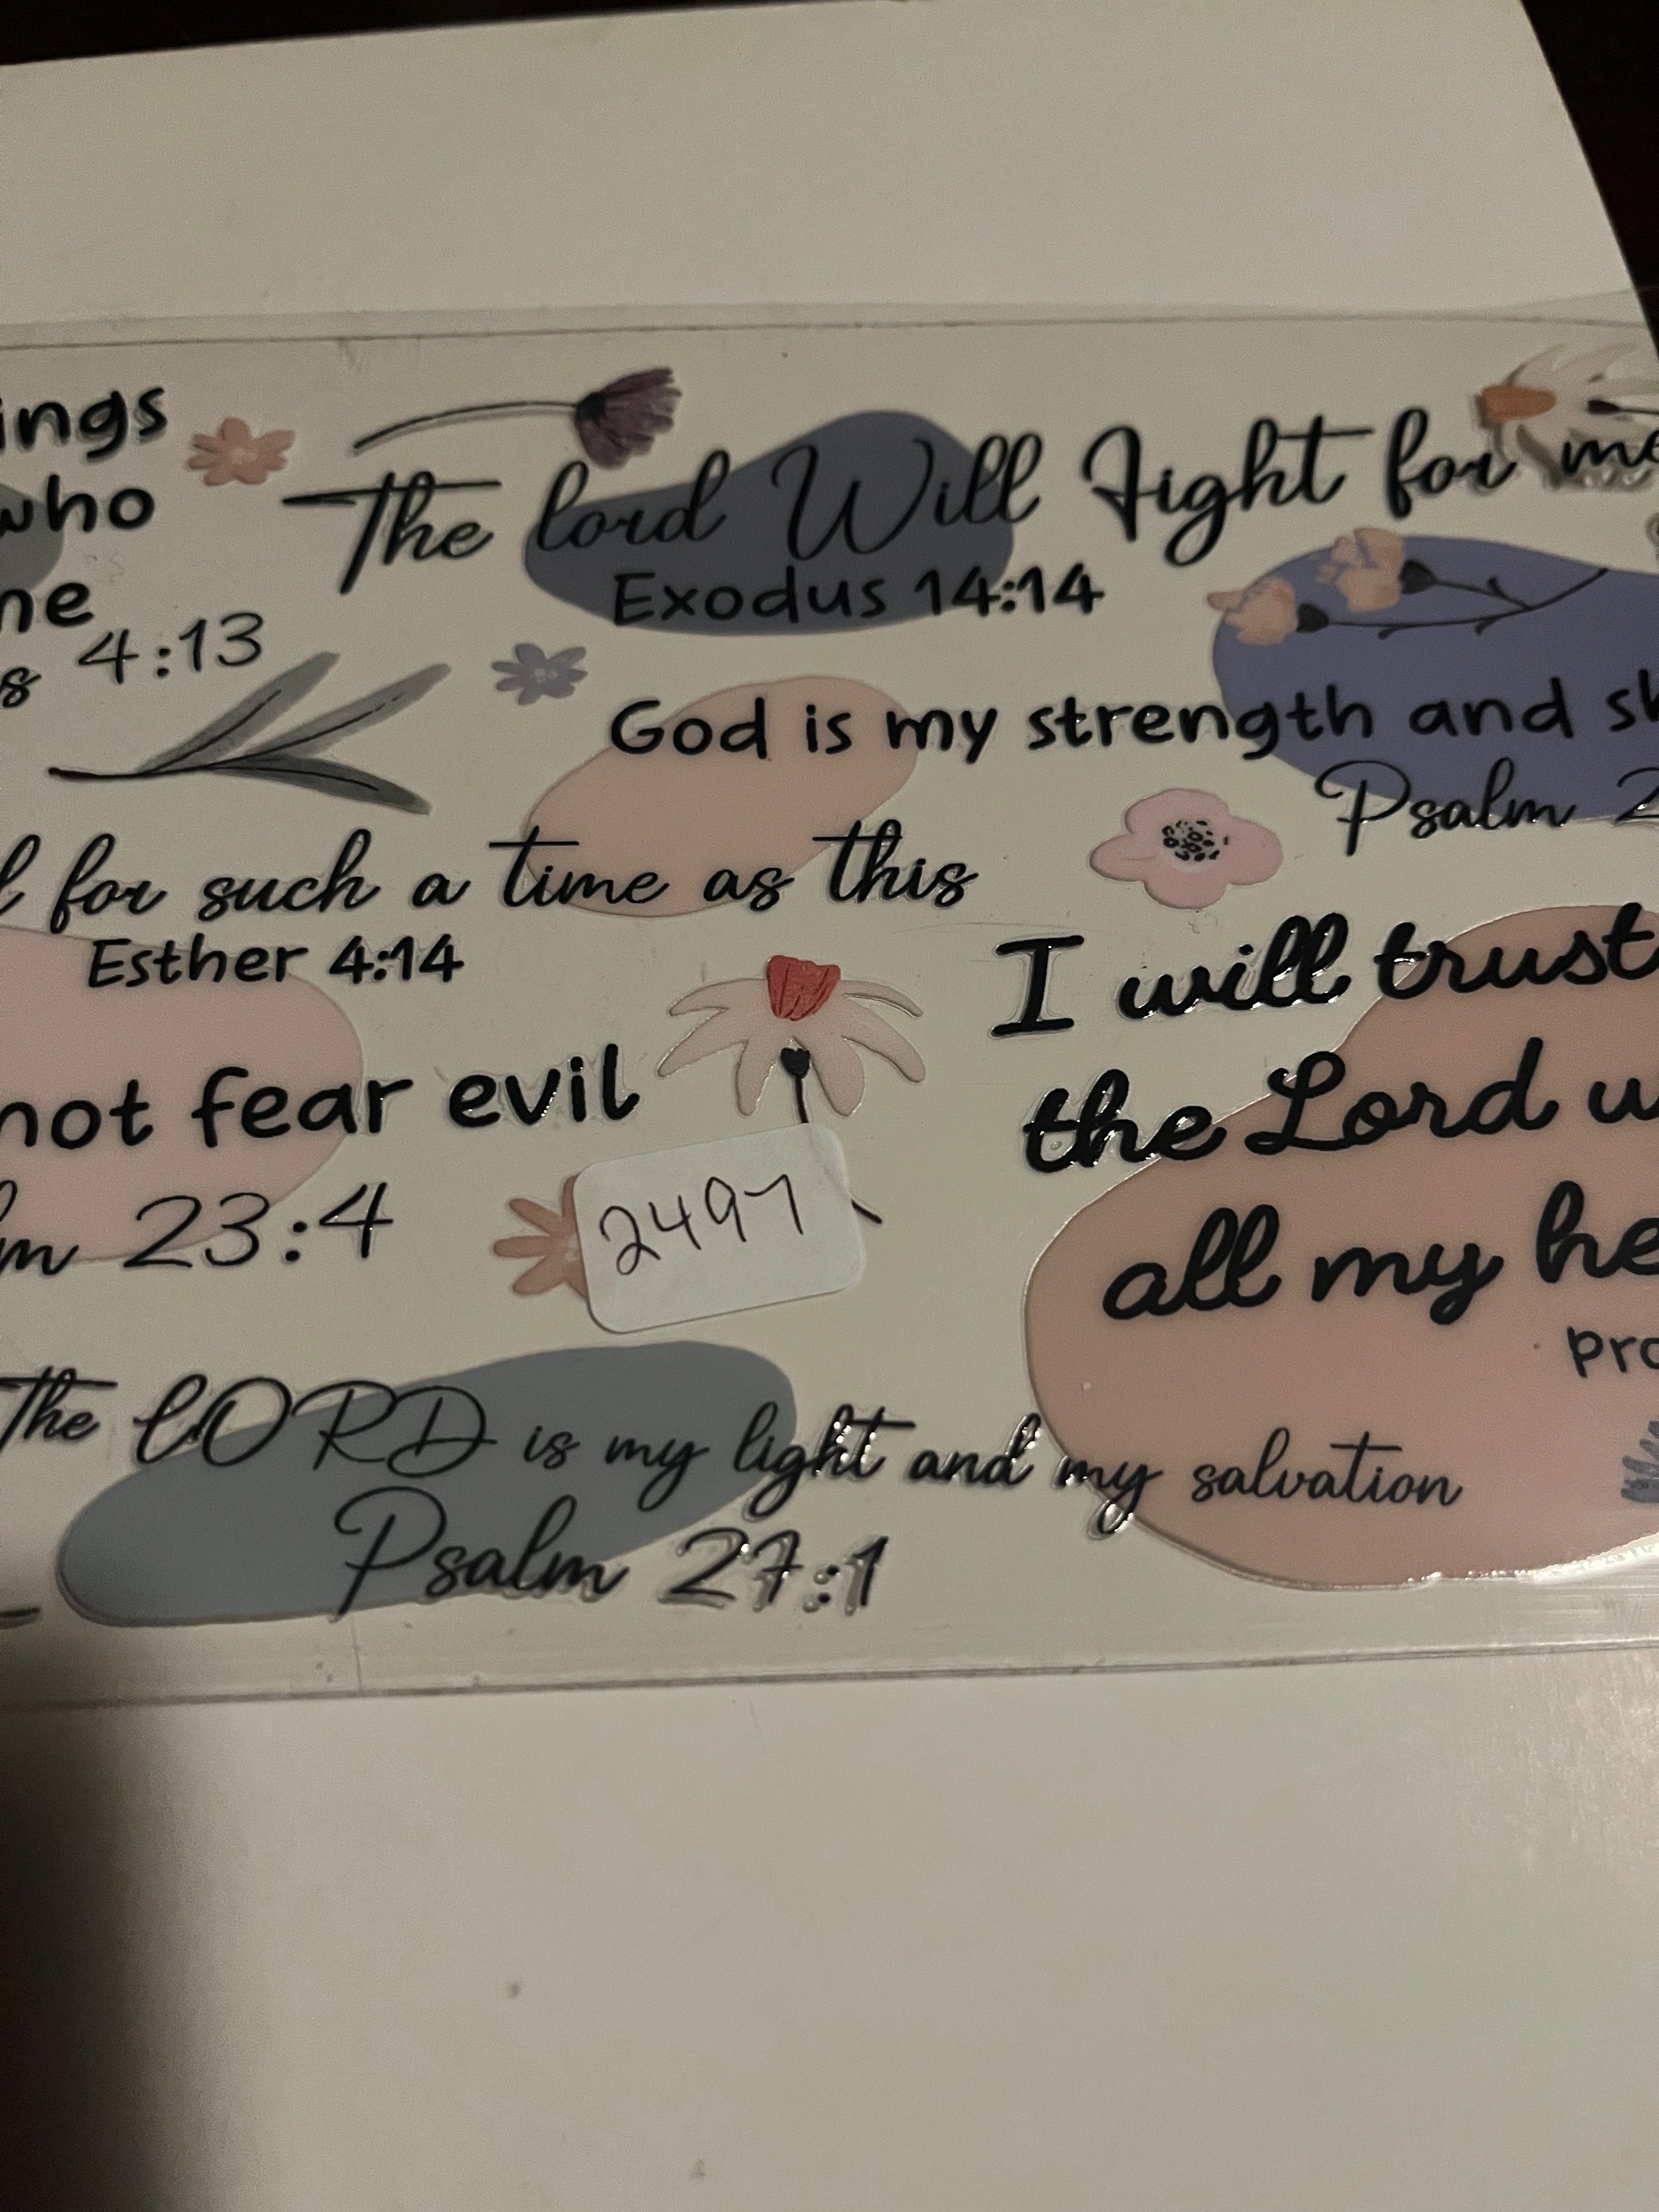 ings
who
ne
s 4:13
The lord Will Fight for me
Exodus 14:14
God is my strength and sh
Psalm 2
l for such a time as this
Esther 4:14
I will trust
the Lord w
all my he
pro
not fear evil
lm 23:4
2497
The LORD is my light and my salvation
Psalm 27:1